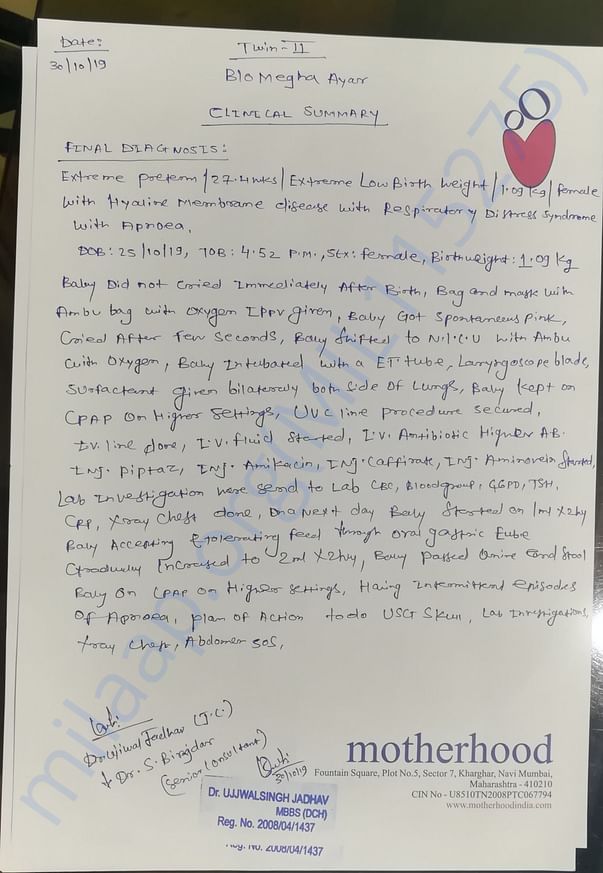 Date:
30/10/19
Twin-II
B/o Megha Ayar
CLINICAL SUMMARY
FINAL DIAGNOSIS:
Extreme preterm / 27.4wks / Extreme Low Birth weight / 1.09 kg / female
with Hyaline Membrane disease with Respiratory Distress Syndrome
with Apnoea,
DOB: 25/10/19, TOB: 4.52 P.M., Sex: female, Birthweight: 1.09 kg
Baby Did not Cried Immediately After Birth, Bag and mask with
Ambu bag with oxygen IPPV given, Baby Got spontaneous pink,
Cried After few seconds, Baby shifted to N.I.C.U with Ambu
with oxygen, Baby Intubated with a ET tube, Laryngoscope blade,
Surfactant given bilaterally both side of Lungs, Baby kept on
CPAP On Higher settings, UVC line procedure secured,
I.V. line done, I.V. fluid started, I.V. Antibiotic Higher AB.
INJ. Piptaz, INJ. Amikacin, INJ. Caffirate, INJ. Aminoven Started,
Lab Investigation were send to Lab CBC, Bloodgroup, G6PD, TSH,
CRP, Xray chest done, Next day Baby Started on 1ml x 2hly
Baby Accepting & tolerating feed through oral gastric tube
Gradually Increased to 2ml x 2hly, Baby passed Urine and Stool
Baby On CPAP on Higher settings, Having Intermittent episodes
Of Apnoea, plan of Action to do USG Skull, Lab Investigations,
Xray chest, Abdomen SOS,
Dr. Ujjwal Jadhav (J.C.)
Dr. S. Birajdar
(Senior Consultant)
30/10/19
motherhood
Fountain Square, Plot No.5, Sector 7, Kharghar, Navi Mumbai,
Maharashtra - 410210
CIN No - U8510TN2008PTC067794
www.motherhoodindia.com
Dr. UJJWALSINGH JADHAV
MBBS (DCH)
Reg. No. 2008/04/1437
Reg. No. 2008/04/1437